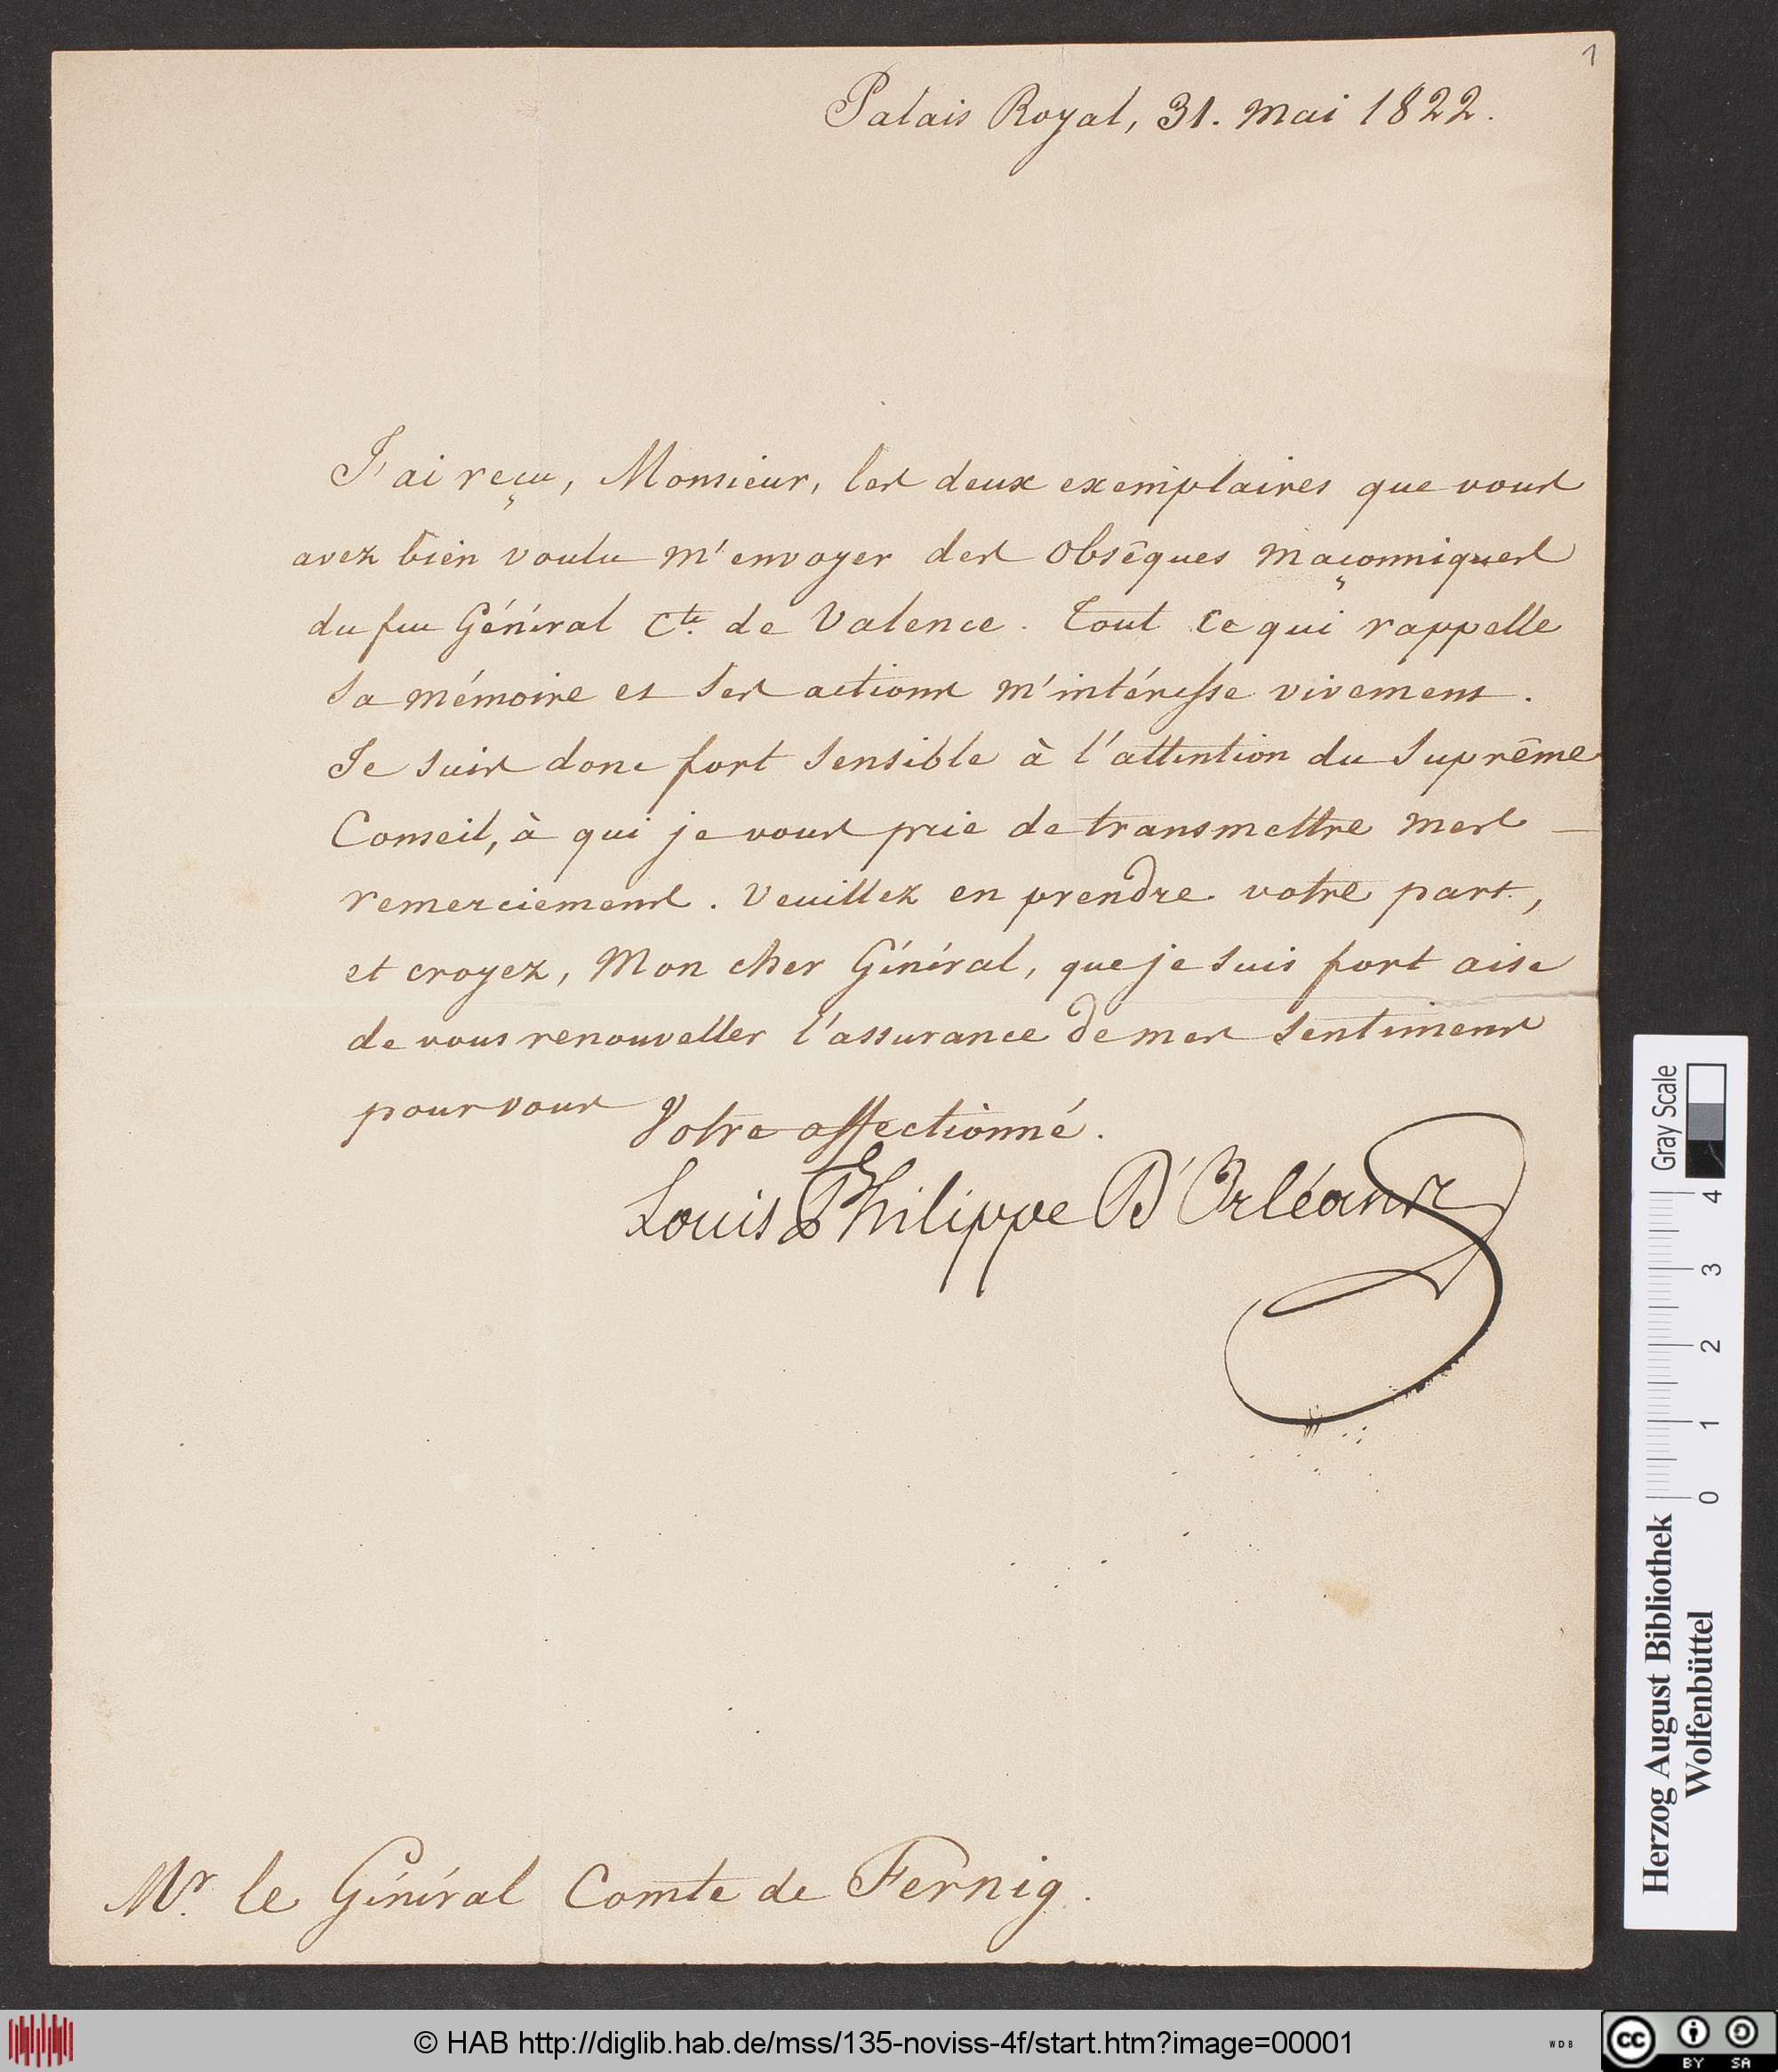 1
Palais Royal, 31. Mai 1822.
J'ai reçu, Monsieur, les deux exemplaires que vous
avez bien voulu m'envoyer des Obsêques Maçonniques
du feu Général Cte. de Valence. Tout ce qui rappelle
Sa mémoire et Ses actions m'intéresse vivement.
Je suis donc fort Sensible à l'attention du Suprême
Conseil, à qui je vous prie de transmettre mes
remerciemens. Veuillez en prendre votre part,
et croyez, Mon cher Général, que je suis fort aise
de vous renouveller l'assurance de mes Sentimens
pour vous
Votre affectionné.
Louis Philippe D'Orléans
Mr. le Général Comte de Fernig.
Gray Scale
0 1 2 3 4
Herzog August Bibliothek
Wolfenbüttel
© HAB http://diglib.hab.de/mss/135-noviss-4f/start.htm?image=00001
WDB
cc BY SA